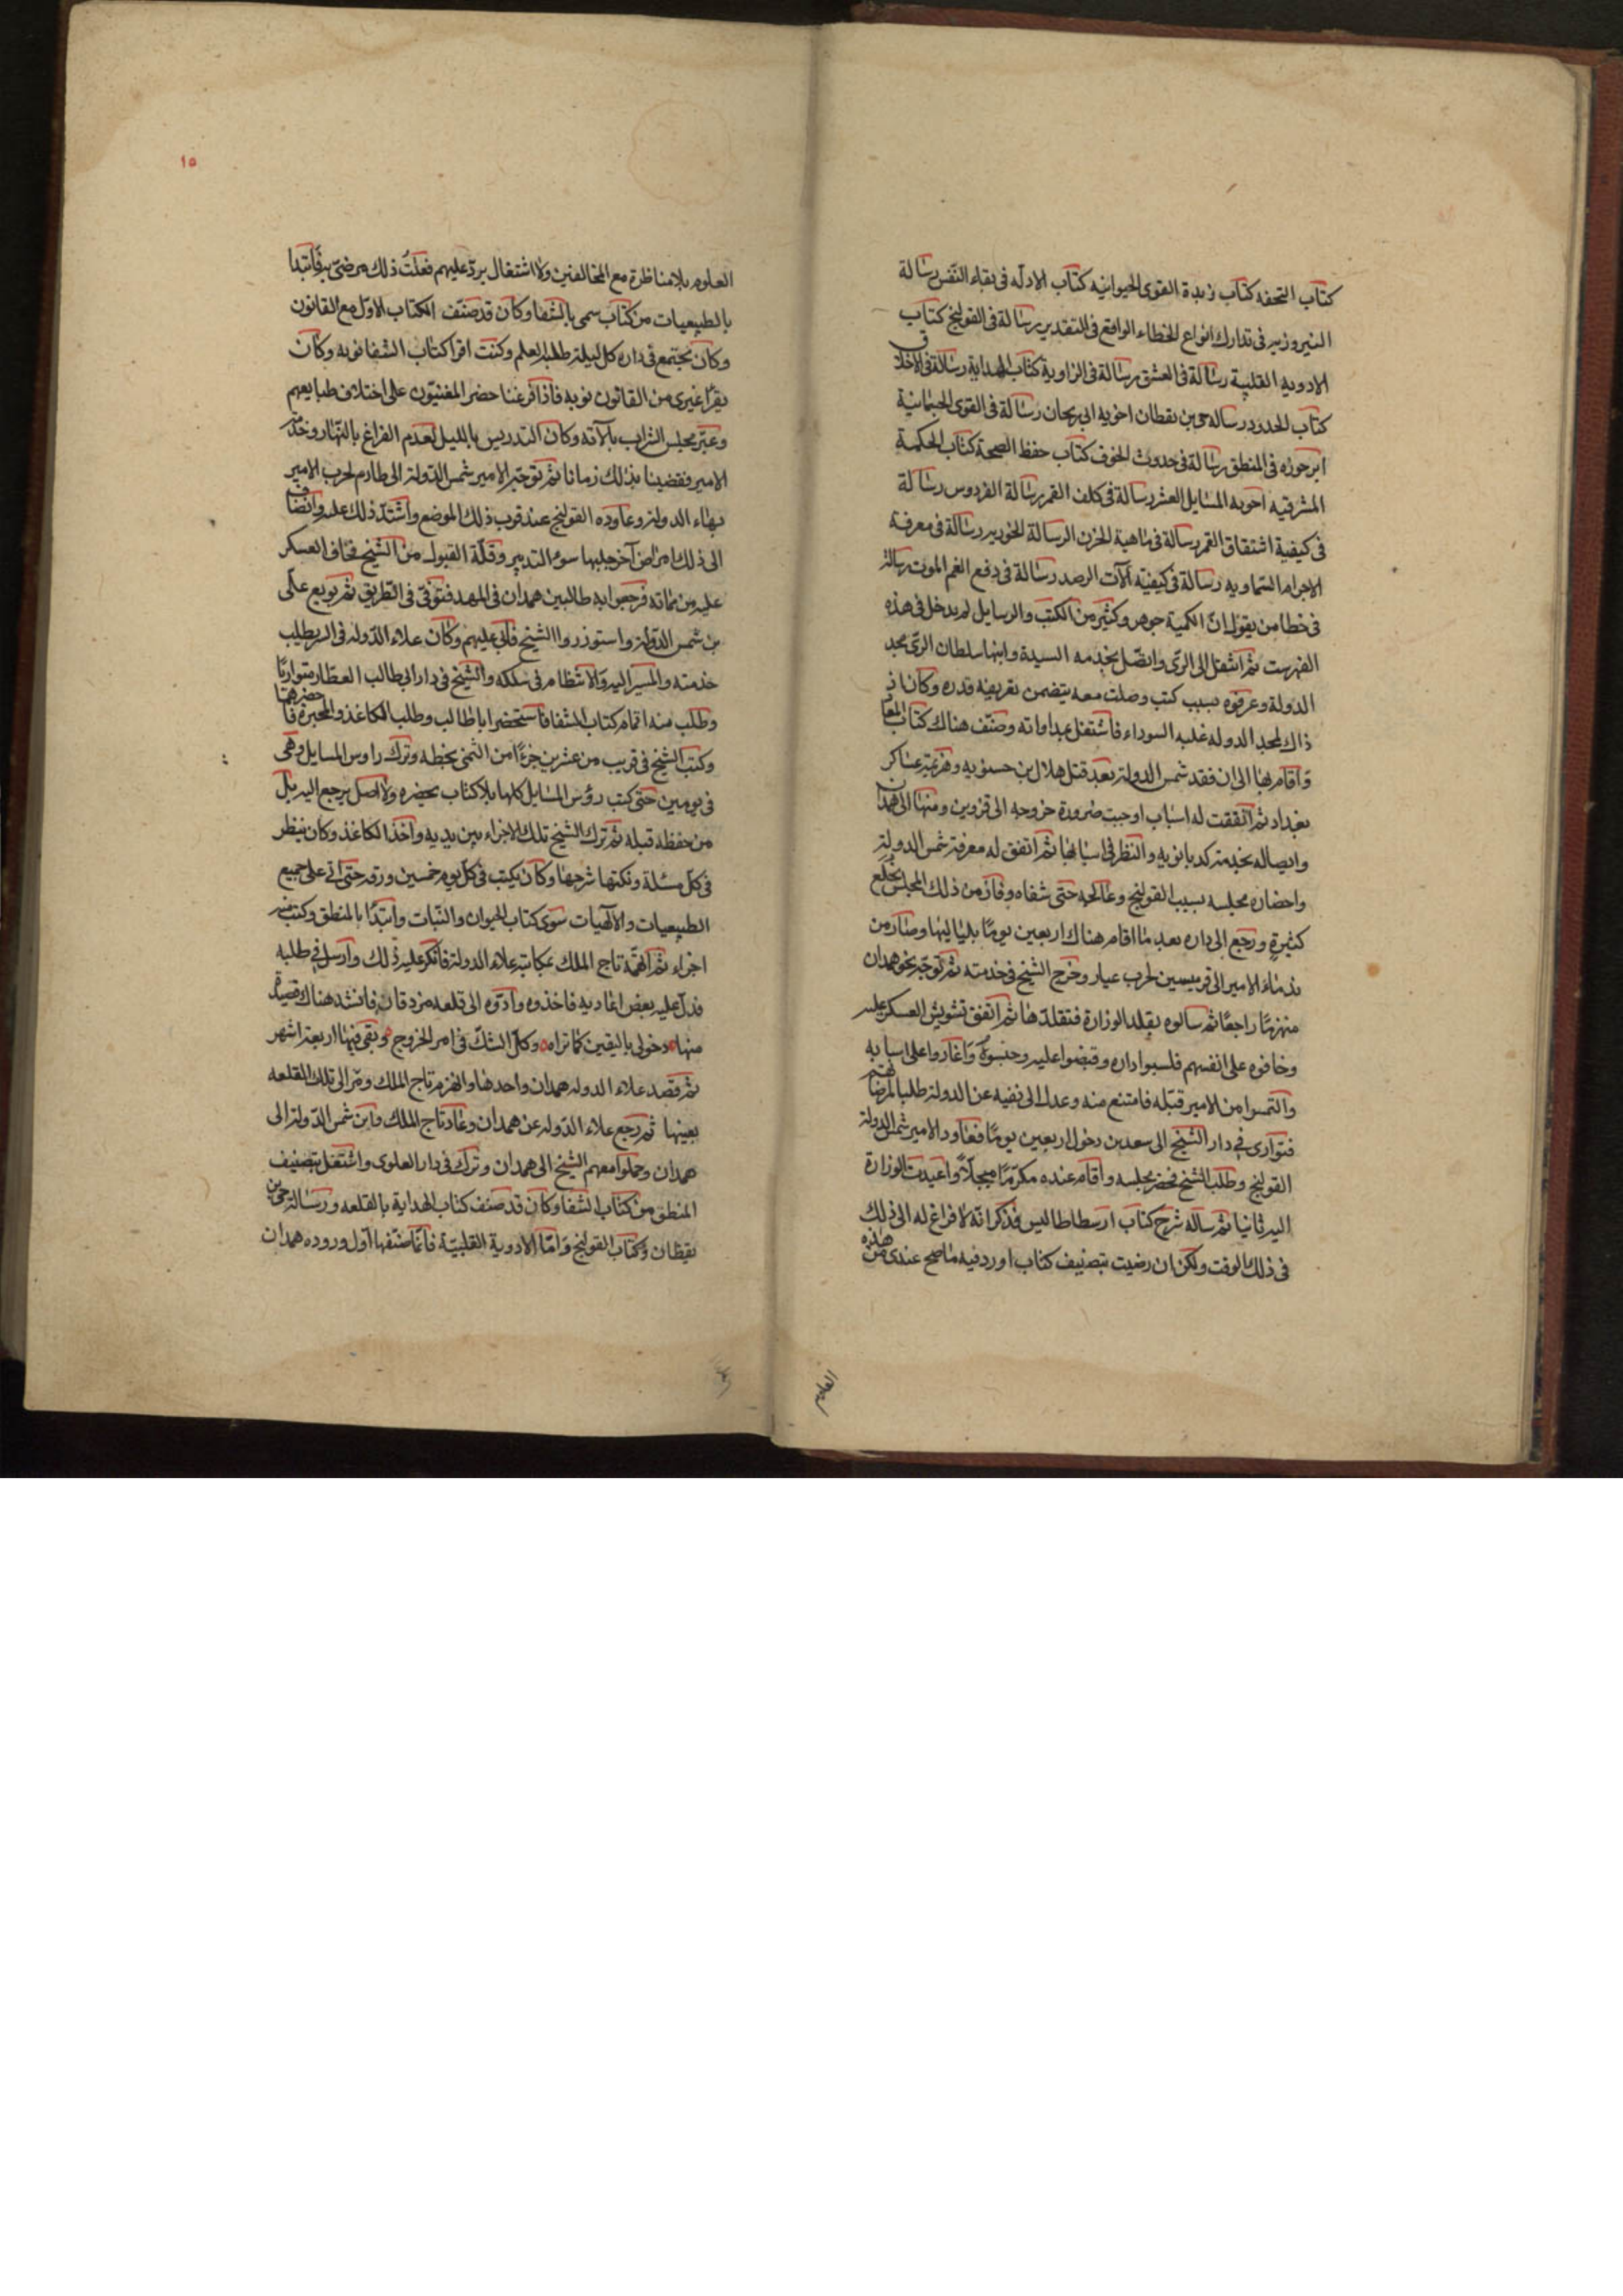 كتاب التحفه كتاب زبدة القوى الحيوانيه كتاب الادله فى بقاء النفس رسالة
النيروزيه فى تدارك انواع الخطاء الواقع فى التقدير رسالة فى القولنج كتاب
الادويه القلبية رسالة فى العشق رسالة فى الزاوية كتاب الهداية رسالة فى الاخلاق
كتاب الحدود رساله حى بن يقظان اجوبه ابى ريحان رسالة فى القوى الجسمانية
ابرجوزه فى المنطق رسالة فى حدوث الحروف كتاب حفظ الصحة كتاب الحكمة
المشرقيه اجوبه المسايل العشر رسالة فى كلف القمر رسالة الفردوس رسالة
فى كيفية اشتقاق القمر رسالة فى ماهية الحزن الرسالة فى معرفة
الاجرام السماويه رسالة فى كيفيّة آلات الرصد رسالة فى دفع الغم الموت رسالة
فى خطا من يقول انّ الكمية جوهر وكثير من الكتب والرسايل لم يدخل فى هذه
الفهرست ثم انتقل الى الرى واتصّل بخدمه السيدة وابنها سلطان الرى مجد
الدولة وعرفوه بسبب كتب وصلت معه يتضمن تعريفه قدره وكان اذ
ذاك لمجد الدوله غلبه السوداء فاشتغل بمداواته وصنّف هناك كتاب المعاد
واقام بها الى ان قصد شمس الدولة بعد قتل هلال بن حسنويه وهزيمة عساكر
بغداد ثم اتفقت له اسباب اوجبت ضرورة خروجه الى قزوين ومنها الى همدان
واتصاله بخدمة كدبانويه والنظر فى اسبابها ثم اتفق له معرفة شمس الدولة
واحضاره مجلسه بسبب القولنج وعالجه حتى شفاه وفاز من ذلك المجلس بخلع
كثيرة ورجع الى داره بعد ما اقام هناك اربعين يومًا بلياليها وصار من
ندماء الامير الى قرميسين لحرب عناز وخرج الشيخ فى خدمته ثم توجّه نحو همدان
منهزمًا راجعًا ثم سالوه بقلد الوزارة فتقلدّها ثم اتفق تشويش العسكر عليه
وخافوه على انفسهم فكبسوا داره وقبضوا عليه وحبسوه واغاروا على اسبابه
والتمسوا من الامير قتله فامتنع منه وعدل الى نفيه عن الدولة طلبا لمرضاتهم
فتوارى فى دار الشيخ ابى سعد بن دخول اربعين يومًا فعاود الامير شمس الدولة
القولنج وطلب الشيخ فحضر مجلسه واقام عنده مكرّمًا مبجلًا واعيدت الوزارة
اليه ثانيا ثم ساله شرح كتاب ارسطاطاليس فذكر انّه لا فراغ له الى ذلك
فى ذلك الوقت ولكن ان رضيت بتصنيف كتاب اورد فيه ما صح عندى من هذه
العلوم
١٥
العلوم بلا مناظرة مع المخالفين ولا اشتغال بردّ عليهم فعلتُ ذلك فرضى به فابتدا
بالطبيعيات من كتاب سمى بالشفا وكان قد صنّف الكتاب الاول مع القانون
وكان يجتمع فى داره كل ليلة طلبة العلم وكنت اقرا كتاب الشفا نوبه وكان
يقرا غيرى من القانون نوبه فاذا فرغنا حضر المغنيّون على اختلاف طبايعهم
وعبّر مجلس الشراب بآلاته وكان التدريس بالليل لعدم الفراغ بالنّهار وخدمة
الامير فقضينا بذلك زمانا ثم توجّه الامير شمس الدّولة الى طارم لحرب الامير
بهاء الدولة وعاوده القولنج عند قرب ذلك الموضع واشتدّ ذلك عليه وانضاف
الى ذلك امراض آخر جلبها سوء التدبير وقلّة القبول من الشيخ فخاف العسكر
عليه من مماته فرجعوا به طالبين همدان فى المهد فتوفّى فى الطّريق ثم بويع على
بن شمس الدولة واستوزروا الشيخ فابى عليهم وكان علاء الدّوله فى السر يطلب
خدمته والمسير اليه والانتظام فى سلكه والشيخ فى دار ابى طالب العطّار متواريًا
وطلب منه اتمام كتاب الشفا فاستحضر اباطالب وطلب الكاغذ والمحبرة فاحضرهما
وكتب الشيخ فى قريب من عشرين جزءًا من الثمن بخطه وترك راوس المسايل وهى
فى يومين حتى كتب رؤس المسايل كلها بلا كتاب يحضره ولا اصل يرجع اليه بل
من حفظه قبله ثم ترك الشيخ تلك الاجزاء بين يديه واخذ الكاغذ وكان ينظر
فى كلّ مسئلة ونكتها شرحها وكان يكتب فى كلّ يوم خمسين ورقه حتى اتى على جميع
الطبيعيات والآلهيات سوى كتاب الحيوان والنّبات وابتدًا بالمنطق وكتب منه
اجزاء ثم اتهمّه تاج الملك بمكاتبة علاء الدولة فانكر عليه ذلك وارسل فى طلبه
فدلّ عليه بعض اعاديه فاخذوه وادّوه الى قلعه مزدقان فانشد هناك قصيدة
منها دخولى باليقين كما تراه وكلّ الشكّ فى امر الخروج وبقى فيها اربعة اشهر
ثم قصد علاء الدوله همدان واخذها وانهزم تاج الملك ومرّ الى تلك القلعه
بعينها ثم رجع علاء الدّوله عن همدان وعاد تاج الملك وابن شمس الدّولة الى
همدان وحملوا معهم الشيخ الى همدان وترك فى دار العلوى واشتغل بتصنيف
المنطق من كتاب الشفا وكان قد صنف كتاب الهداية بالقلعه ورسالة حى بن
يقظان وكتاب القولنج وامّا الادوية القلبيّة فانّما صنّفها اوّل وروده همدان